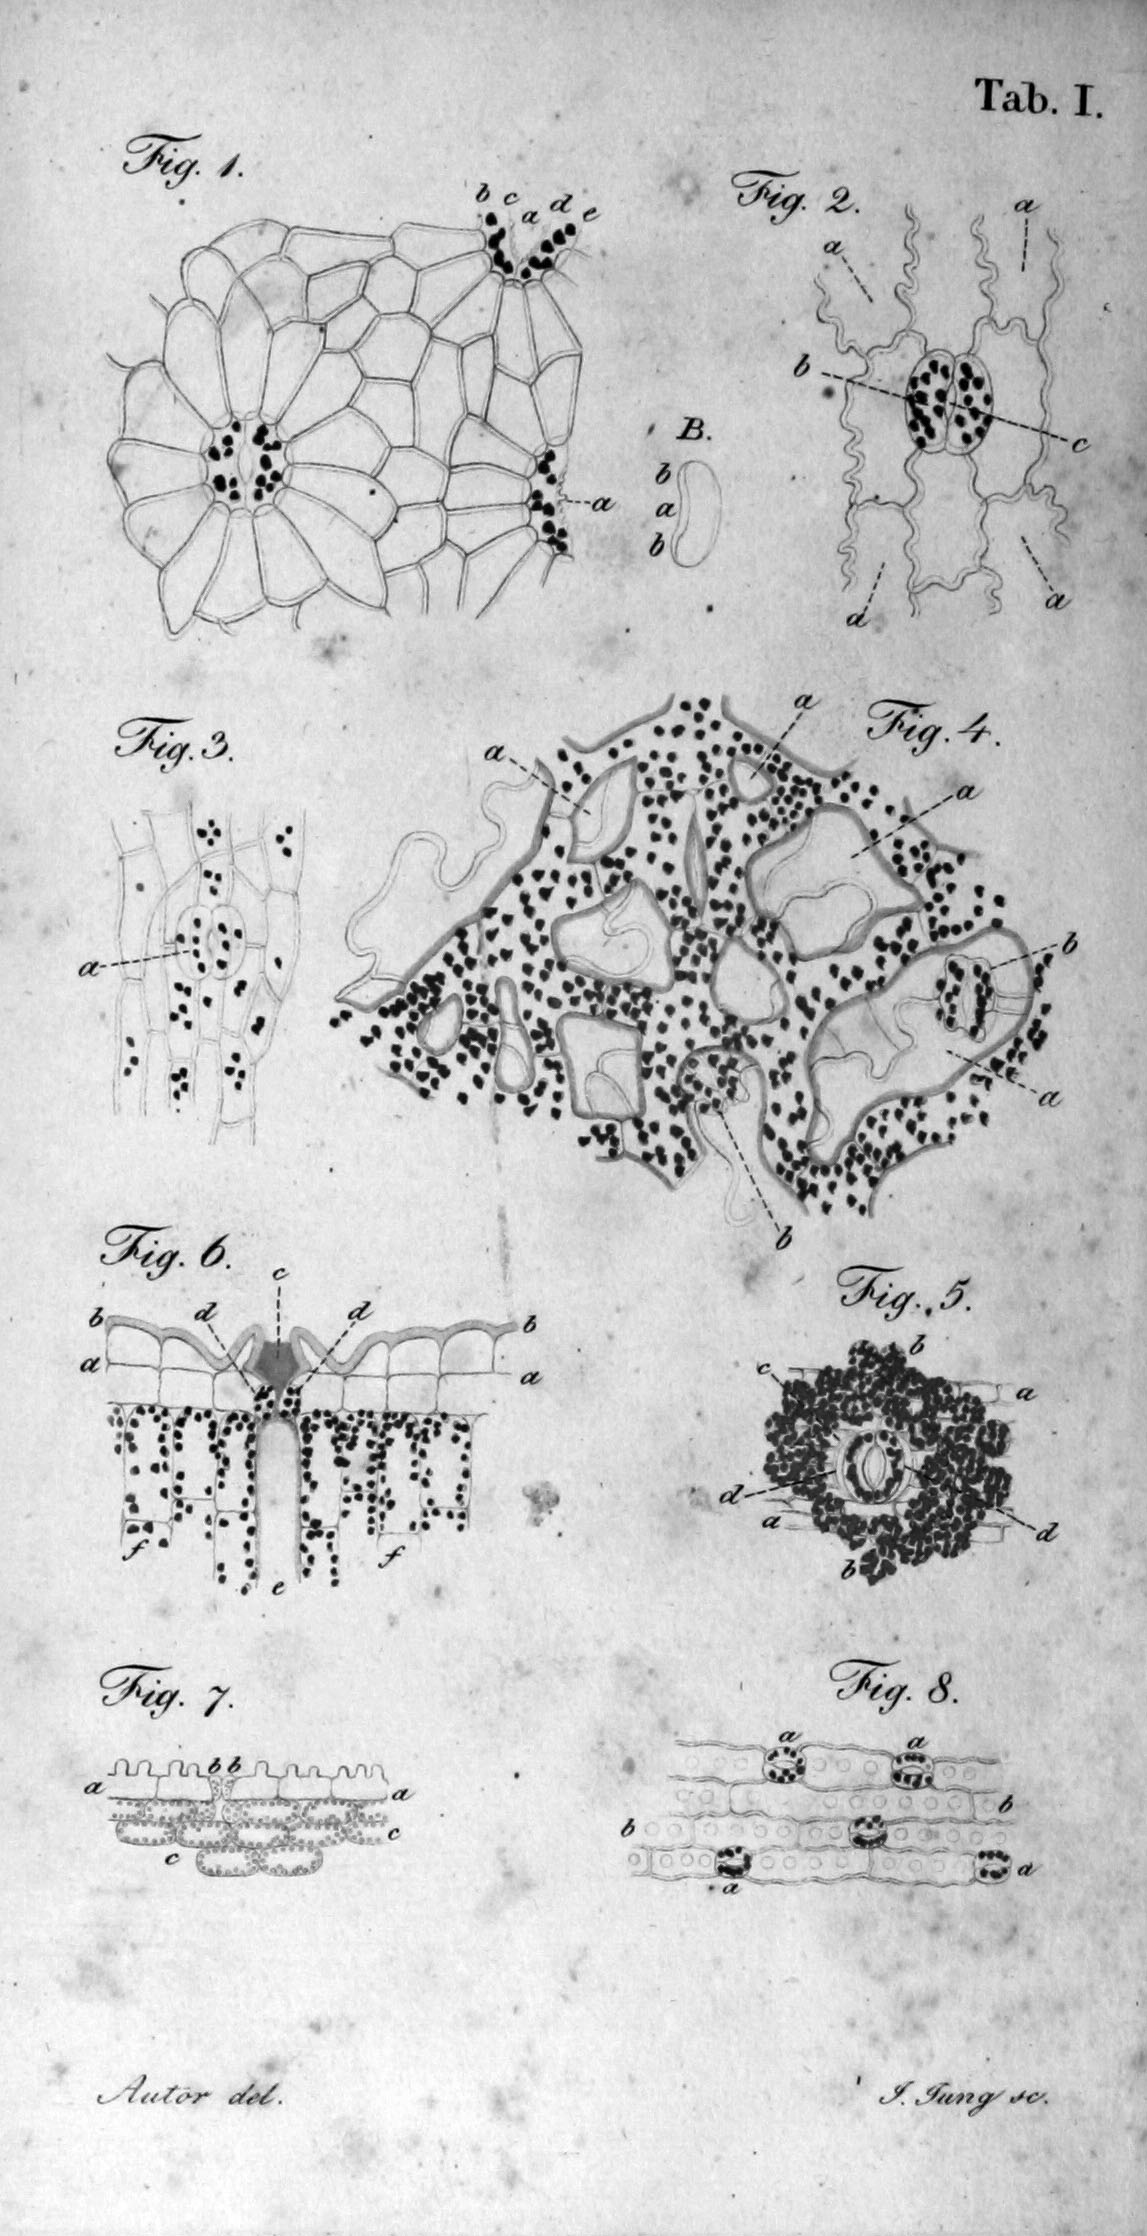 Tab. I.
Fig. 1.
b c a d e
a
B.
b
a
b
Fig. 2.
a
a
b
c
a
a
Fig. 3.
a
Fig. 4.
a
a
a
b
a
b
Fig. 6.
c
d
d
b
b
a
a
f
e
f
Fig. 5.
b
c
a
d
a
d
b
Fig. 7.
b b
a
a
c
c
Fig. 8.
a
a
b
b
a
a
Autor del.
J. Jung sc.